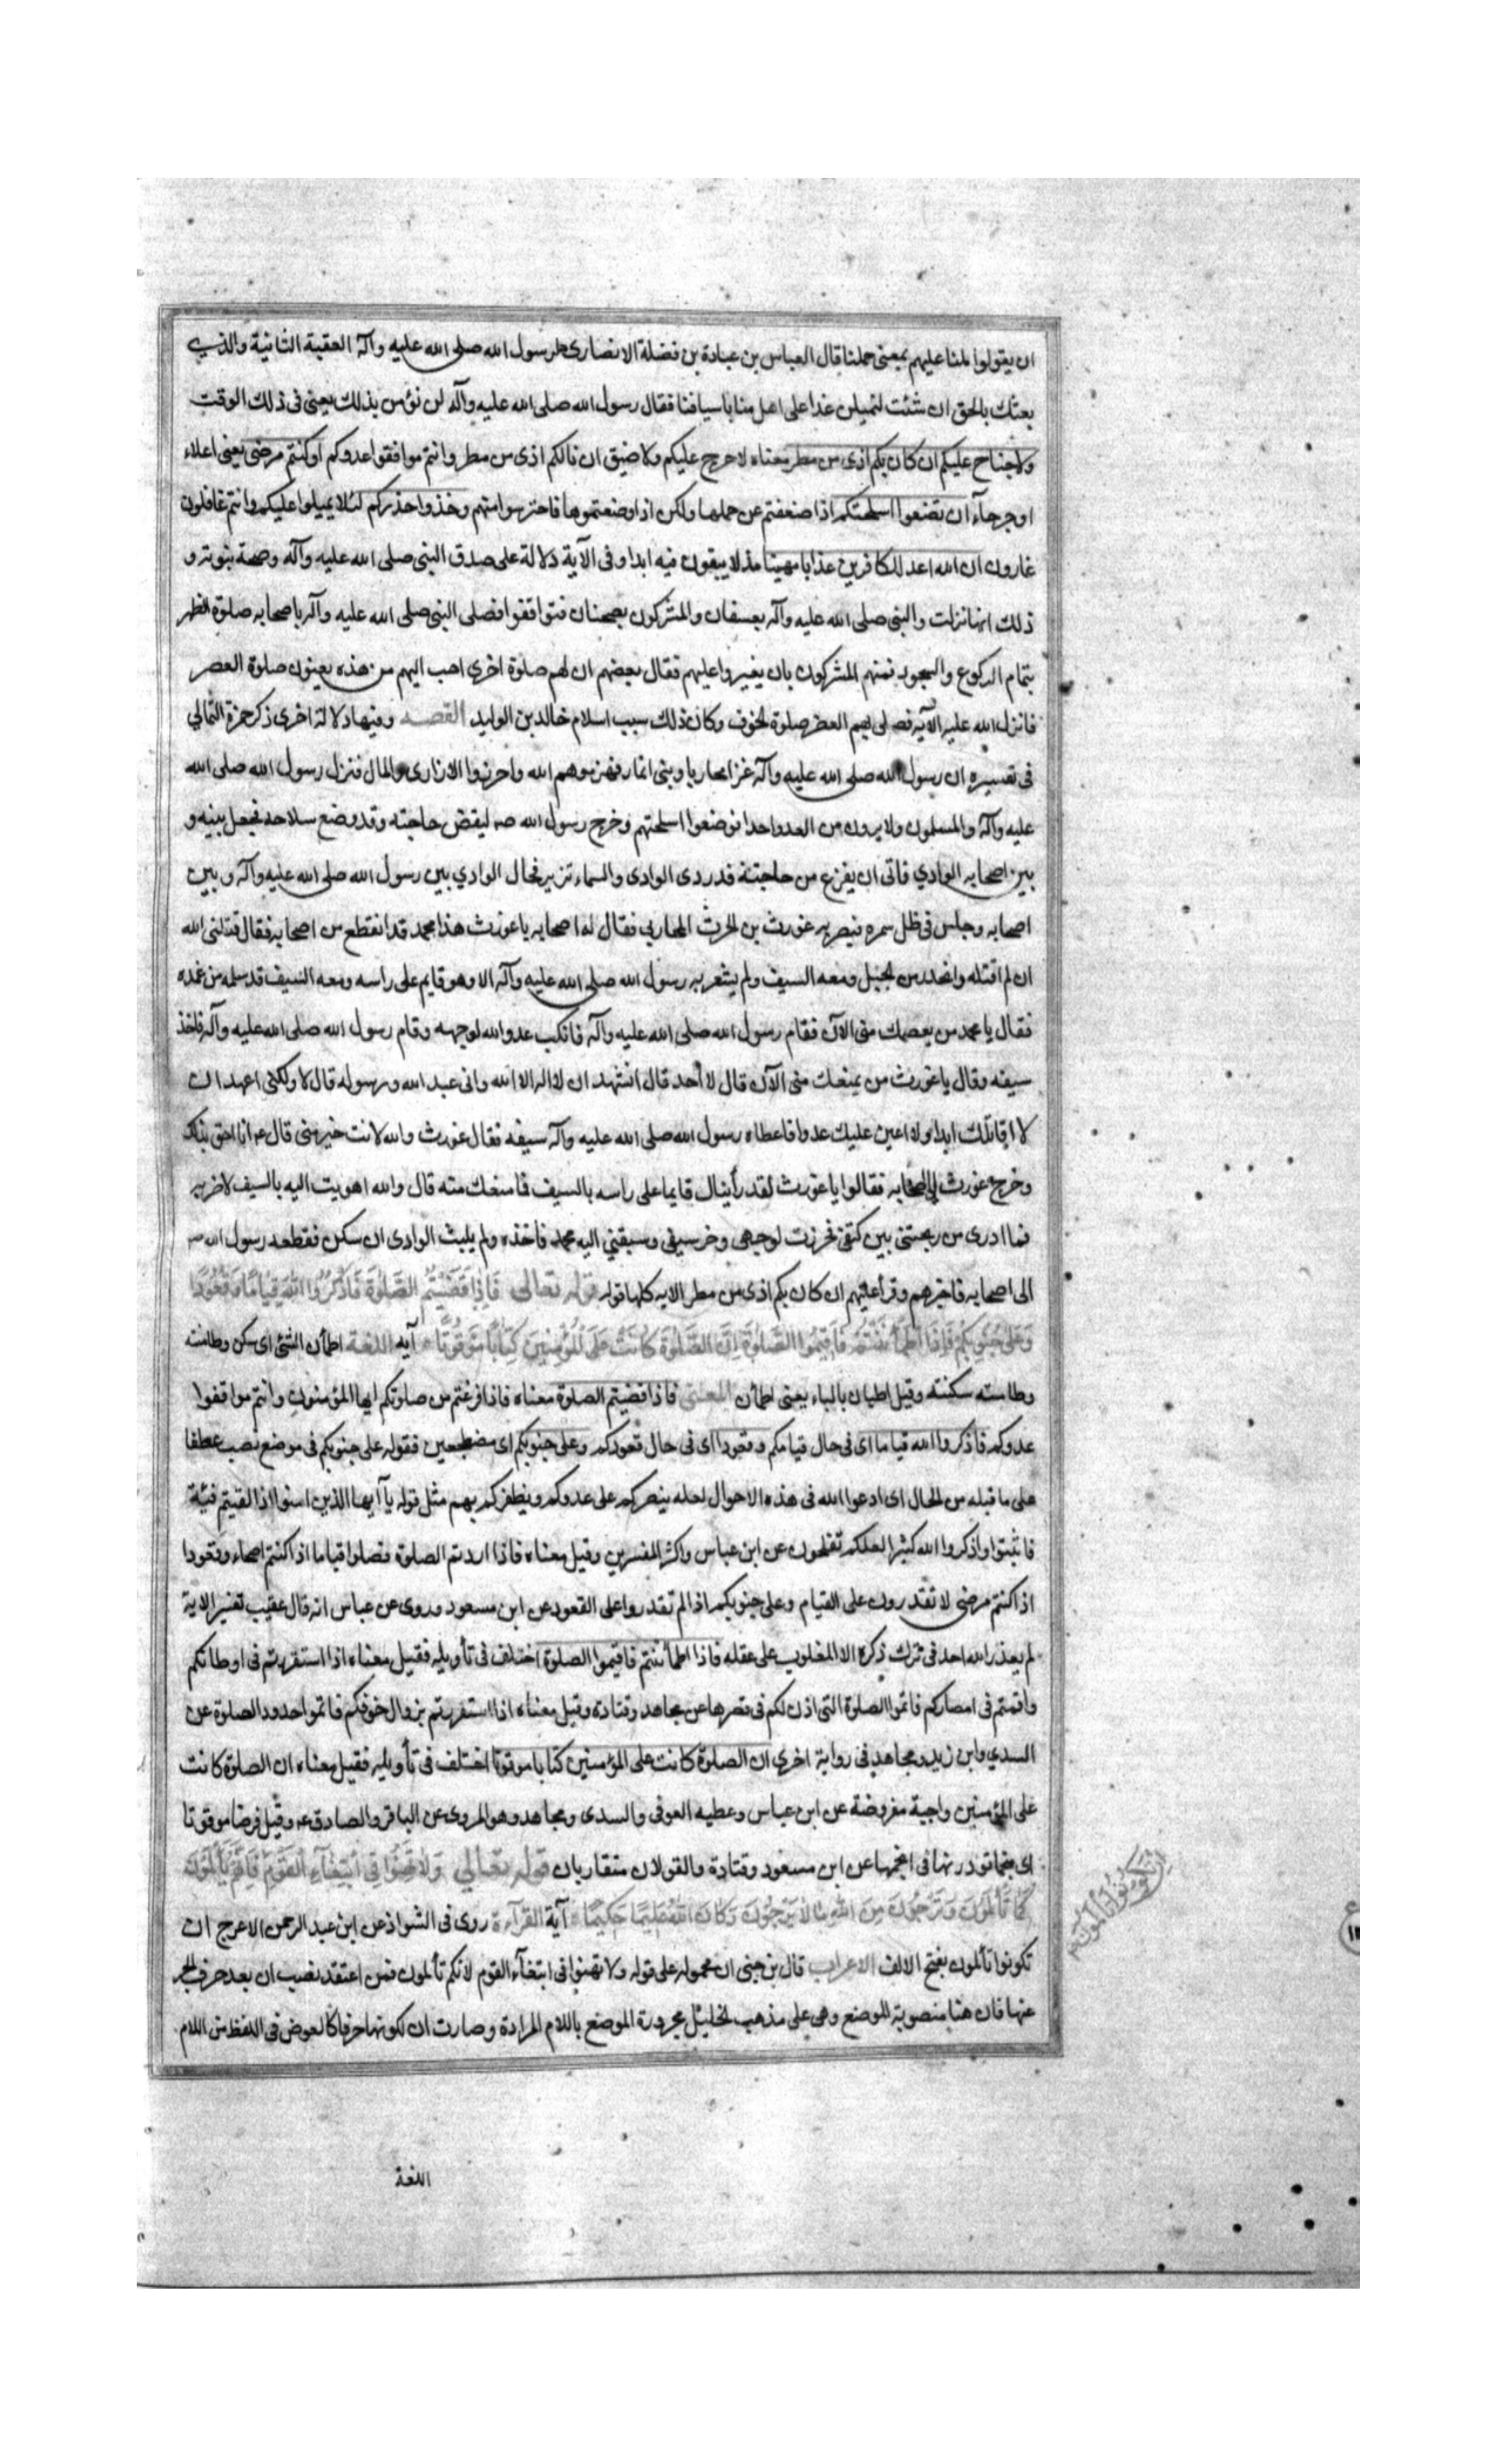 ان يقولوا ملنا عليهم بمعنى حملنا قال العباس بن عبادة بن نضلة الانصارى لرسول الله صلى الله عليه وآله العقبة الثانية والذي
بعثك بالحق ان شئت لتميلن غدا على اهل منا باسيافنا فقال رسول الله صلى الله عليه وآله لن نؤمن بذلك يعنى فى ذلك الوقت
ولا جناح عليكم ان كان بكم اذى من مطر معناه لا حرج عليكم ولا ضيق ان نالكم اذى من مطر وانتم موافقوا عدوكم او كنتم مرضى يعنى اعلاء
او جرحآء ان تضعوا اسلحتكم اذا ضعفتم عن حملها ولكن اذا وضعتموها فاحترسوا منهم وخذوا حذركم لئلا يميلوا عليكم وانتم غافلون
غارون ان الله اعد للكافرين عذابا مهينا مذلا يبقون فيه ابدا وفى الآية دلالة على صدق النبى صلى الله عليه وآله وصحة نبوته و
ذلك انها نزلت والنبى صلى الله عليه وآله بعسفان والمشركون بضجنان فتواقفوا فصلى النبى صلى الله عليه وآله باصحابه صلوة الظهر
بتمام الركوع والسجود فهمّ المشركون بان يغيروا عليهم فقال بعضهم ان لهم صلوة اخرى احب اليهم من هذه يعنون صلوة العصر
فانزل الله عليه الآية فصلى بهم العصر صلوة الخوف وكان ذلك سبب اسلام خالد بن الوليد القصه وفيها دلالة اخرى ذكر حمزة الثمالي
فى تفسيره ان رسول الله صلى الله عليه وآله غزا محاربا وبنى انمار فهزموهم الله واحرزوا الذرارى والمال فنزل رسول الله صلى الله
عليه وآله والمسلمون ولا يرون من العدو احدا فوضعوا اسلحتهم وخرج رسول الله صـ ليقضى حاجته وقد وضع سلاحه فجعل بينه و
بين اصحابه الوادي فاتى ان يفرغ من حاجته قد ردى الوادى والسماء تزير فحال الوادي بين رسول الله صلى الله عليه وآله وبين
اصحابه وجلس فى ظل سمره فبصر به غورث بن الحرث المحاربي فقال له اصحابه يا غورث هذا محمد قد انقطع من اصحابه فقال قتلنى الله
ان لم اقتله وانحدر من الجبل ومعه السيف ولم يشعر به رسول الله صلى الله عليه وآله الا وهو قايم على راسه ومعه السيف قد سله من غمده
فقال يا محمد من يعصمك منى الآن فقام رسول الله صلى الله عليه وآله فانكب عدو الله لوجهه وقام رسول الله صلى الله عليه وآله فاخذ
سيفه وقال يا غورث من يمنعك منى الآن قال لا أحد قال اتشهد ان لا اله الا الله وانى عبد الله ورسوله قال لا ولكنى اعهد ان
لا اقاتلك ابدا ولا اعين عليك عدوا فاعطاه رسول الله صلى الله عليه وآله سيفه فقال غورث والله لانت خير منى قال عـ انا احق بذلك
وخرج غورث الى اصحابه فقالوا يا غورث لقد رأيناك قايما على راسه بالسيف فما منعك منه قال والله اهويت اليه بالسيف لاضربه
فما ادرى من زبختنى بين كتفى فخررت لوجهى وخر سيفى وسبقني اليه محمد فاخذه ولم يلبث الوادى ان سكن فقطعه رسول الله صـ
الى اصحابه فاخبرهم وقرأ عليهم ان كان بكم اذى من مطر الايه كلها قوله قوله تعالى فَإِذَا قَضَيْتُمُ الصَّلوةَ فَاذْكُرُوا اللّٰهَ قِيَامًا وَقُعُودًا
وَعَلَى جُنُوبِكُمْ فَإِذَا اطْمَأْنَنْتُمْ فَأَقِيمُوا الصَّلوةَ إِنَّ الصَّلوةَ كَانَتْ عَلَى الْمُؤْمِنِينَ كِتَابًا مَوْقُوتًا آيه اللغة اطمأن الشئ اى سكن وطامنته
وطامنته سكنته وقيل اطبان بالباء بمعنى اطمأن المعنى فاذا قضيتم الصلوة معناه فاذا فرغتم من صلوتكم ايها المؤمنون وانتم مواقفوا
عدوكم فاذكروا الله قياما اى فى حال قيامكم وقعودا اى فى حال قعودكم وعلى جنوبكم اى مضطجعين فقوله على جنوبكم فى موضع نصب عطفا
على ما قبله من الحال اى ادعوا الله فى هذه الاحوال لعله ينصركم على عدوكم ويظفركم بهم مثل قوله يآ أيها الذين امنوا اذا لقيتم فئة
فاثبتوا واذكروا الله كثيرا لعلكم تفلحون عن ابن عباس واكثر المفسرين وقيل معناه فاذا اردتم الصلوة فصلوا قياما اذا كنتم اصحاء وقعودا
اذا كنتم مرضى لا تقدرون على القيام وعلى جنوبكم اذا لم تقدروا على القعود عن ابن مسعود وروى عن عباس انه قال عقيب تفسير الاية
لم يعذر الله احد فى ترك ذكره الا المغلوب على عقله فاذا اطمأننتم فاقيموا الصلوة اختلف فى تأويله فقيل معناه اذا استقررتم فى اوطانكم
واقمتم فى امصاركم فاتموا الصلوة التى اذن لكم فى قصرها عن مجاهد وقتادة وقيل معناه اذا استقررتم بزوال خوفكم فاتموا حدود الصلوة عن
السدي وابن زيد ومجاهد فى رواية اخرى ان الصلوة كانت على المؤمنين كتابا موقوتا اختلف فى تأويله فقيل معناه ان الصلوة كانت
على المؤمنين واجبة مفروضة عن ابن عباس وعطيه العوفى والسدى ومجاهد وهو المروى عن الباقر والصادق عـ وقيل فرضا موقوتا
اى منجما تودونها فى انجمها عن ابن مسعود وقتادة والقولان متقاربان قوله تعالي وَلَا تَهِنُوا فِى ابْتِغَآءِ الْقَوْمِ إِنْ تَكُونُوا تَأْلَمُونَ فَإِنَّهُمْ يَأْلَمُونَ
كَمَا تَأْلَمُونَ وَتَرْجُونَ مِنَ اللّٰهِ مَا لَا يَرْجُونَ وَكَانَ اللّٰهُ عَلِيمًا حَكِيمًا آية القرآءة روى فى الشواذ عن ابن عبد الرحمن الاعرج ان
تكونوا تألمون بفتح الالف الاعراب قال بن جنى ان محموله على قوله ولا تهنوا فى ابتغآء القوم لانكم تألمون فمن اعتقد نصب ان بعد حرف الجر
عنها فان هنا منصوبة الموضع وهى على مذهب الخليل مجرورة الموضع باللام المرادة وصارت ان لكونها حرفا كالعوض فى اللفظ من اللام
اللغة